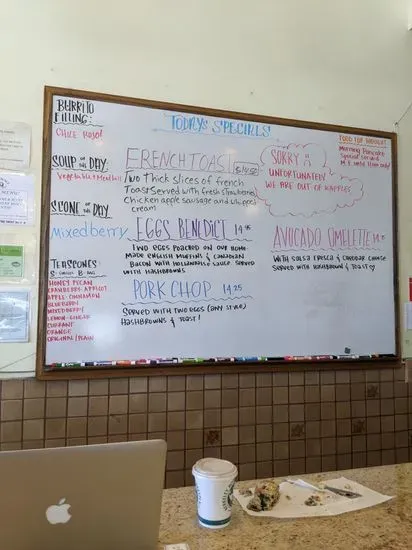 TODAYS SPECIALS
BURRITO
FILLING:
CHILE ROJO!
SOUP OF THE DAY:
Vegetable & Meatball
SCONE OF THE DAY
Mixed berry
TEA SCONES:
HONEY PECAN
CRANBERRY APRICOT
APPLE CINNAMON
BLUEBERRY
MIXED BERRY
LEMON GINGER
CURRANT
ORANGE
ORIGINAL / PLAIN
FRENCH TOAST
Two thick slices of french
Toast Served with fresh strawberries
Chicken apple sausage and whipped
cream
EGGS BENEDICT 14.95
TWO EGGS POACHED ON OUR HOME
MADE ENGLISH MUFFINS & CANADIAN
BACON WITH HOLLANDAISE SAUCE. SERVED
WITH HASHBROWNS
PORK CHOP 14.25
SERVED WITH TWO EGGS (ANY STYLE)
HASHBROWNS & TOAST!
SORRY
UNFORTUNATELY
WE ARE OUT OF WAFFLES
FOOD FOR THOUGHT
Morning Pancake
Special served
M-F until 11am only!
AVOCADO OMELETTE
WITH SALSA FRESCA & CHEDDAR CHEESE
SERVED WITH HASHBROWNS & TOAST